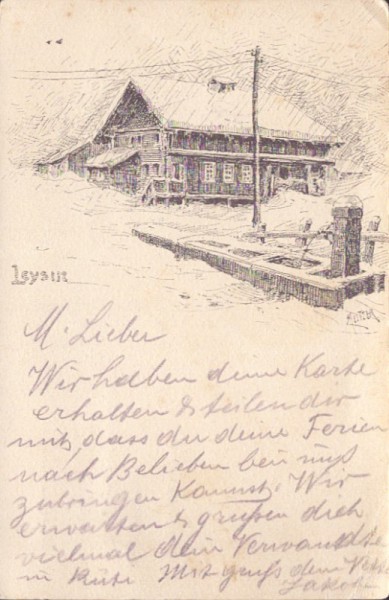 Leysin
M. Lieber
Wir haben deine Karte
erhalten & teilen dir
mit, dass du deine Ferien
nach Belieben bei uns
zubringen kannst. Wir
erwarten & grüßen dich
vielmal dein Verwandte
in Mit gruß dein
Jakob